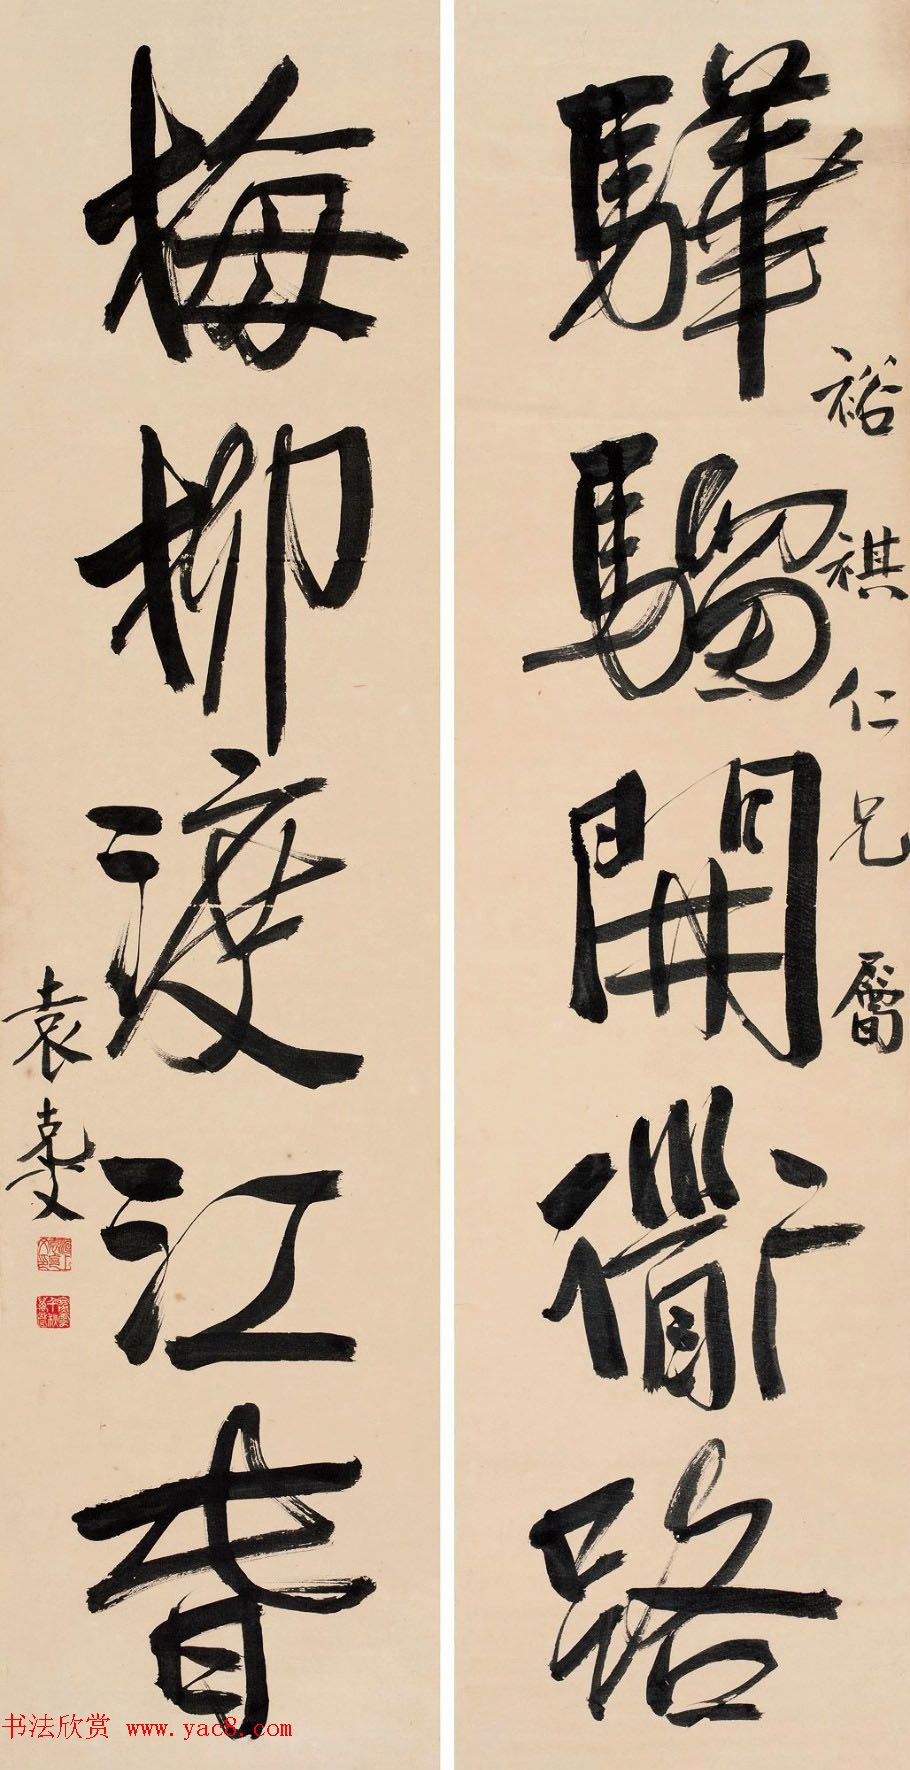 裕祺仁兄屬
驊騮開衟路
梅柳渡江春
袁克文
书法欣赏 www.yac8.com